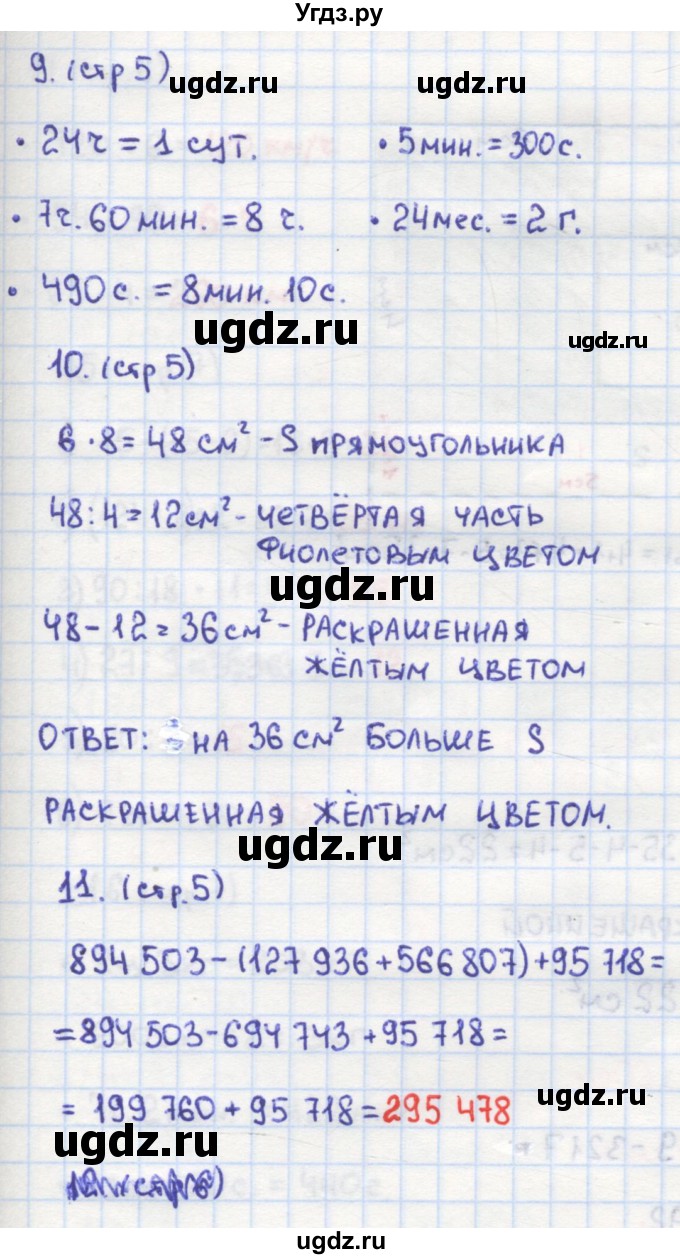 Угдз.ру
9. (стр 5)
ugdz.ru
• 24ч = 1 сут. • 5 мин. = 300 с.
• 7ч. 60 мин. = 8 ч. • 24 мес. = 2 г.
• 490 с. = 8 мин. 10 с.
ugdz.ru
ugdz.ru
10. (стр 5)
6 · 8 = 48 см² - S ПРЯМОУГОЛЬНИКА
48 : 4 = 12 см² - ЧЕТВЁРТАЯ ЧАСТЬ
ФИОЛЕТОВЫМ ЦВЕТОМ
ugdz.ru
48 - 12 = 36 см² - РАСКРАШЕННАЯ
ЖЁЛТЫМ ЦВЕТОМ
ОТВЕТ: НА 36 см² БОЛЬШЕ S
РАСКРАШЕННАЯ ЖЁЛТЫМ ЦВЕТОМ.
ugdz.ru
11. (стр. 5)
894 503 - (127 936 + 566 807) + 95 718 =
= 894 503 - 694 743 + 95 718 =
ugdz.ru
= 199 760 + 95 718 = 295 478
ugdz.ru
ugdz.ru